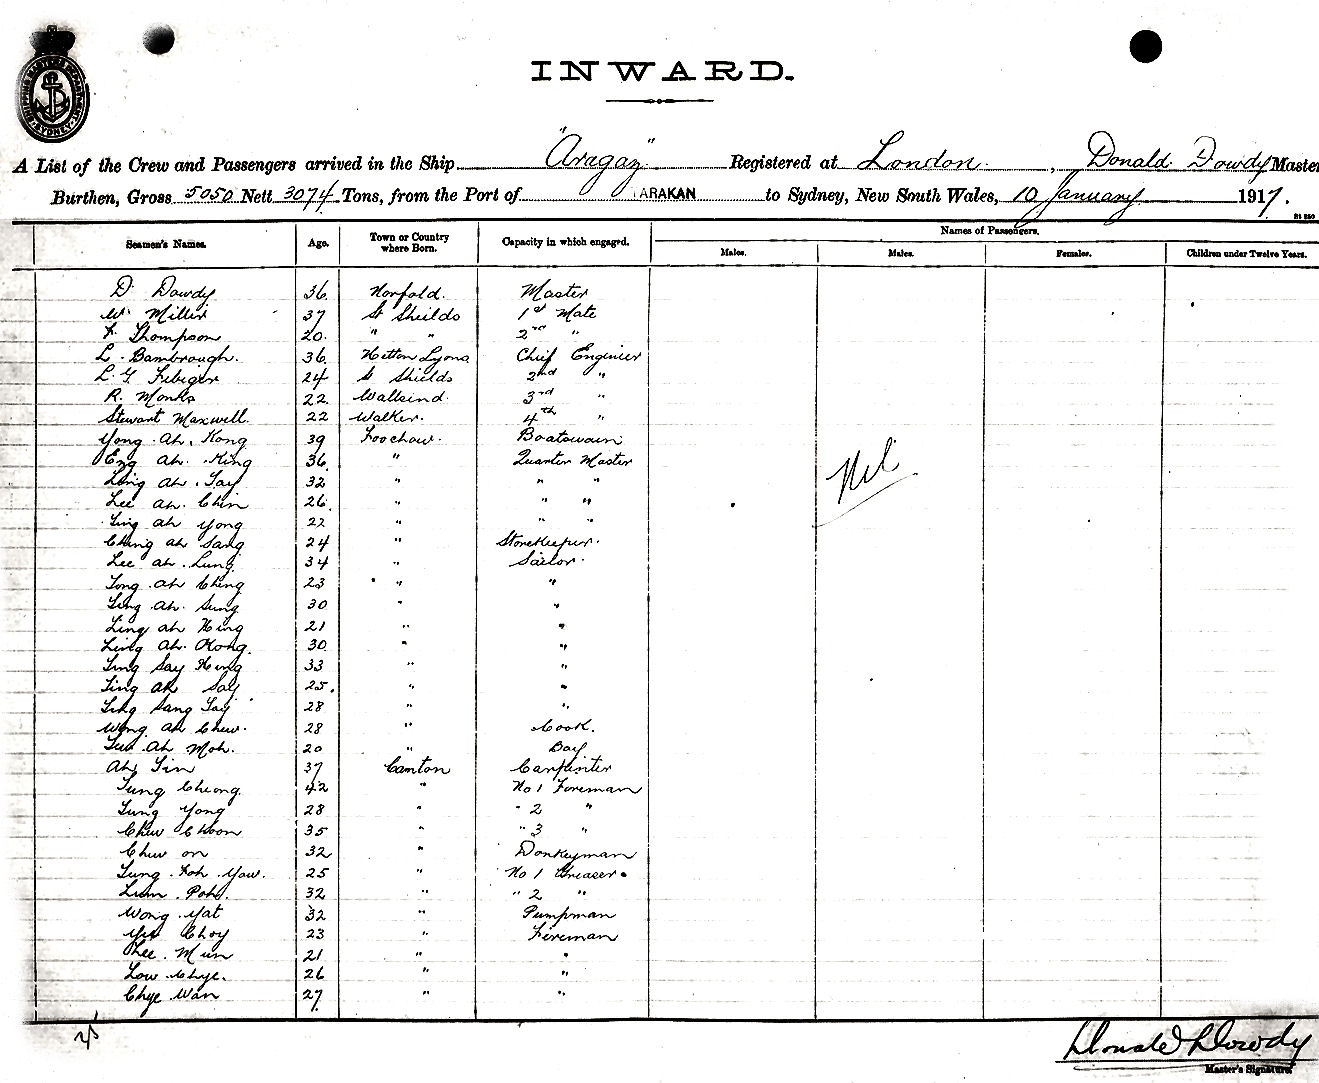 INWARD.
A List of the Crew and Passengers arrived in the Ship "Aragaz" Registered at London, Donald Dowdy Master
Burthen, Gross 5050 Nett 3074 Tons, from the Port of TARAKAN to Sydney, New South Wales, 10 January 1917.
Seamen's Names. Age. Town or Country where Born. Capacity in which engaged. Names of Passengers.
Males. Males. Females. Children under Twelve Years.
D. Dowdy 36. Norfold. Master
W. Miller 37 St Sheilds 1st Mate
F. Thompson 20. " " 2nd "
L. Bambrough. 36. Hetton Lyons Chief Engineer
L. G. Febiger 24 S Shields 2nd "
R. Monks 22. Wallsend. 3rd "
Stewart Maxwell. 22 Walker. 4th "
Yong Ah. Kong 39 Foochow. Boatswain
Eng Ah. King 36. " Quarter Master
Ling Ah. Tay 32 " " "
Lee Ah. Chin 26. " " "
Ling Ah Yong 22 " " "
Ching Ah Sang 24 " Storekeeper.
Lee Ah. Lung 34 " Sailor.
Tong Ah Ching 23 " "
Ling Ah. Sung 30 " "
Ling Ah Hing 21 " "
Ling Ah. Kong. 30 " "
Ting Say Hing 33 " "
Ting Ah Say 25. " "
Ling Sang Tay 28 " "
Wong Ah Chew. 28 " Cook.
Ah Moh. 20 " Boy
Ah Tin 37 Canton Carpenter
Tung Cheong. 42 " No 1 Fireman
Tung Yong 28 " " 2 "
Chew Choon 35 " " 3 "
Chew on 32 " Donkeyman
Tung Foh Yow. 25 " No 1 Greaser
Lum Poh. 32 " " 2 "
Wong Yat 32 " Pumpman
Choy 23 " Fireman
Lee Mun 21 " "
Low Chye. 26 " "
Chye Wan 27 " "
Nil
Donald Dowdy
Master's Signature.